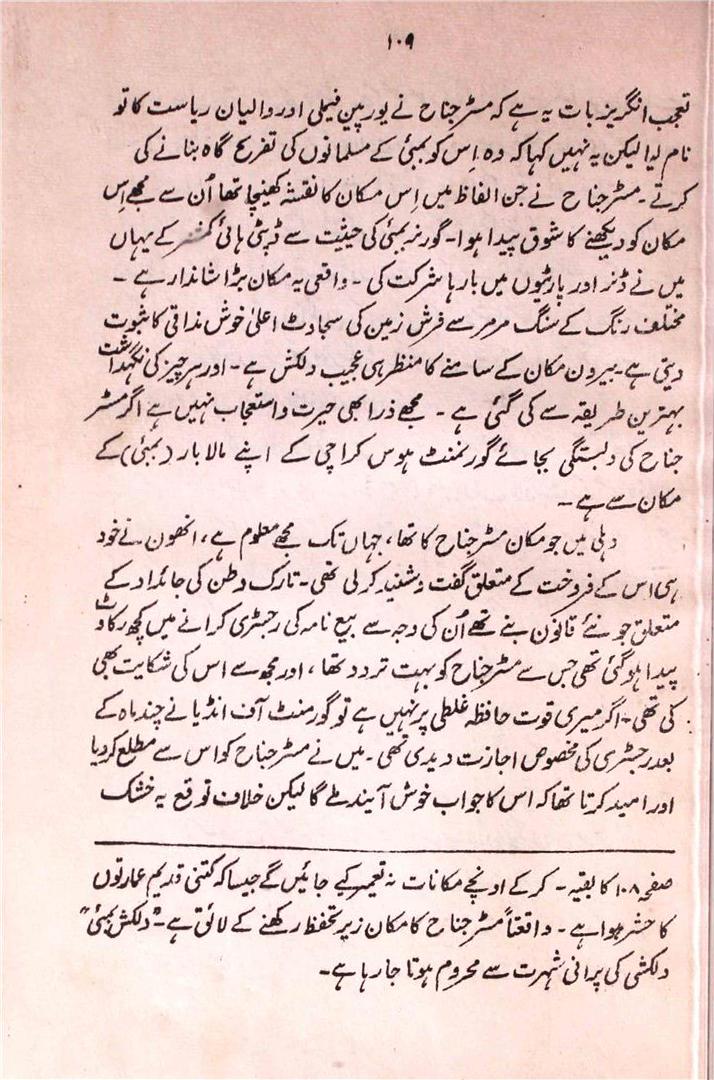 ۱۰۹
تعجب انگریز بات یہ ہے کہ مسٹر جناح نے یورپین فیملی اور والیان ریاست کا تو
نام لیا لیکن یہ نہیں کہا کہ وہ اِس کو بمبئی کے مسلمانوں کی تفریح گاہ بنانے کی
کرتے۔ مسٹر جناح نے جن الفاظ میں اِس مکان کا نقشہ کھینچا تھا اُن سے مجھے اِس
مکان کو دیکھنے کا شوق پیدا ہوا۔ گورنر بمبئی کی حیثیت سے ڈپٹی ہائی کمشنر کے یہاں
میں نے ڈنر اور پارٹیوں میں بارہا شرکت کی۔ واقعی یہ مکان بڑا شاندار ہے۔
مختلف رنگ کے سنگ مرمر سے فرش زمین کی سجاوٹ اعلیٰ خوش مذاقی کا ثبوت
دیتی ہے۔ بیرون مکان کے سامنے کا منظر ہی عجیب دلکش ہے۔ اور ہر چیز کی نگہداشت
بہترین طریقہ سے کی گئی ہے۔ مجھے ذرا بھی حیرت و استعجاب نہیں ہے اگر مسٹر
جناح کی دلبستگی بجائے گورنمنٹ ہوس کراچی کے اپنے مالابار (بمبئی) کے
مکان سے ہے۔
دہلی میں جو مکان مسٹر جناح کا تھا، جہاں تک مجھے معلوم ہے، انھون نے خود
ہی اس کے فروخت کے متعلق گفت و شنید کر لی تھی۔ تارک وطن کی جائداد کے
متعلق جو نئے قانون بنے تھے اُن کی وجہ سے بیع نامہ کی رجسٹری کرانے میں کچھ رکاوٹ
پیدا ہو گئی تھی جس سے مسٹر جناح کو بہت تردد تھا، اور مجھ سے اس کی شکایت بھی
کی تھی۔ اگر میری قوت حافظہ غلطی پر نہیں ہے تو گورمنٹ آف انڈیا نے چند ماہ کے
بعد رجسٹری کی مخصوص اجازت دیدی تھی۔ میں نے مسٹر جناح کو اس سے مطلع کر دیا
اور امید کرتا تھا کہ اس کا جواب خوش آیند ملے گا لیکن خلاف توقع یہ خشک
صفحہ ۱۰۸ کا بقیہ۔ کر کے اونچے مکانات نہ تعمیر کیے جائیں گے جیسا کہ کتنی قدیم عمارتوں
کا حشر ہوا ہے۔ واقعتاً مسٹر جناح کا مکان زیر تحفظ رکھنے کے لائق ہے۔ "دلکش بمبئی"
دلکشی کی پرانی شہرت سے محروم ہوتا جا رہا ہے۔